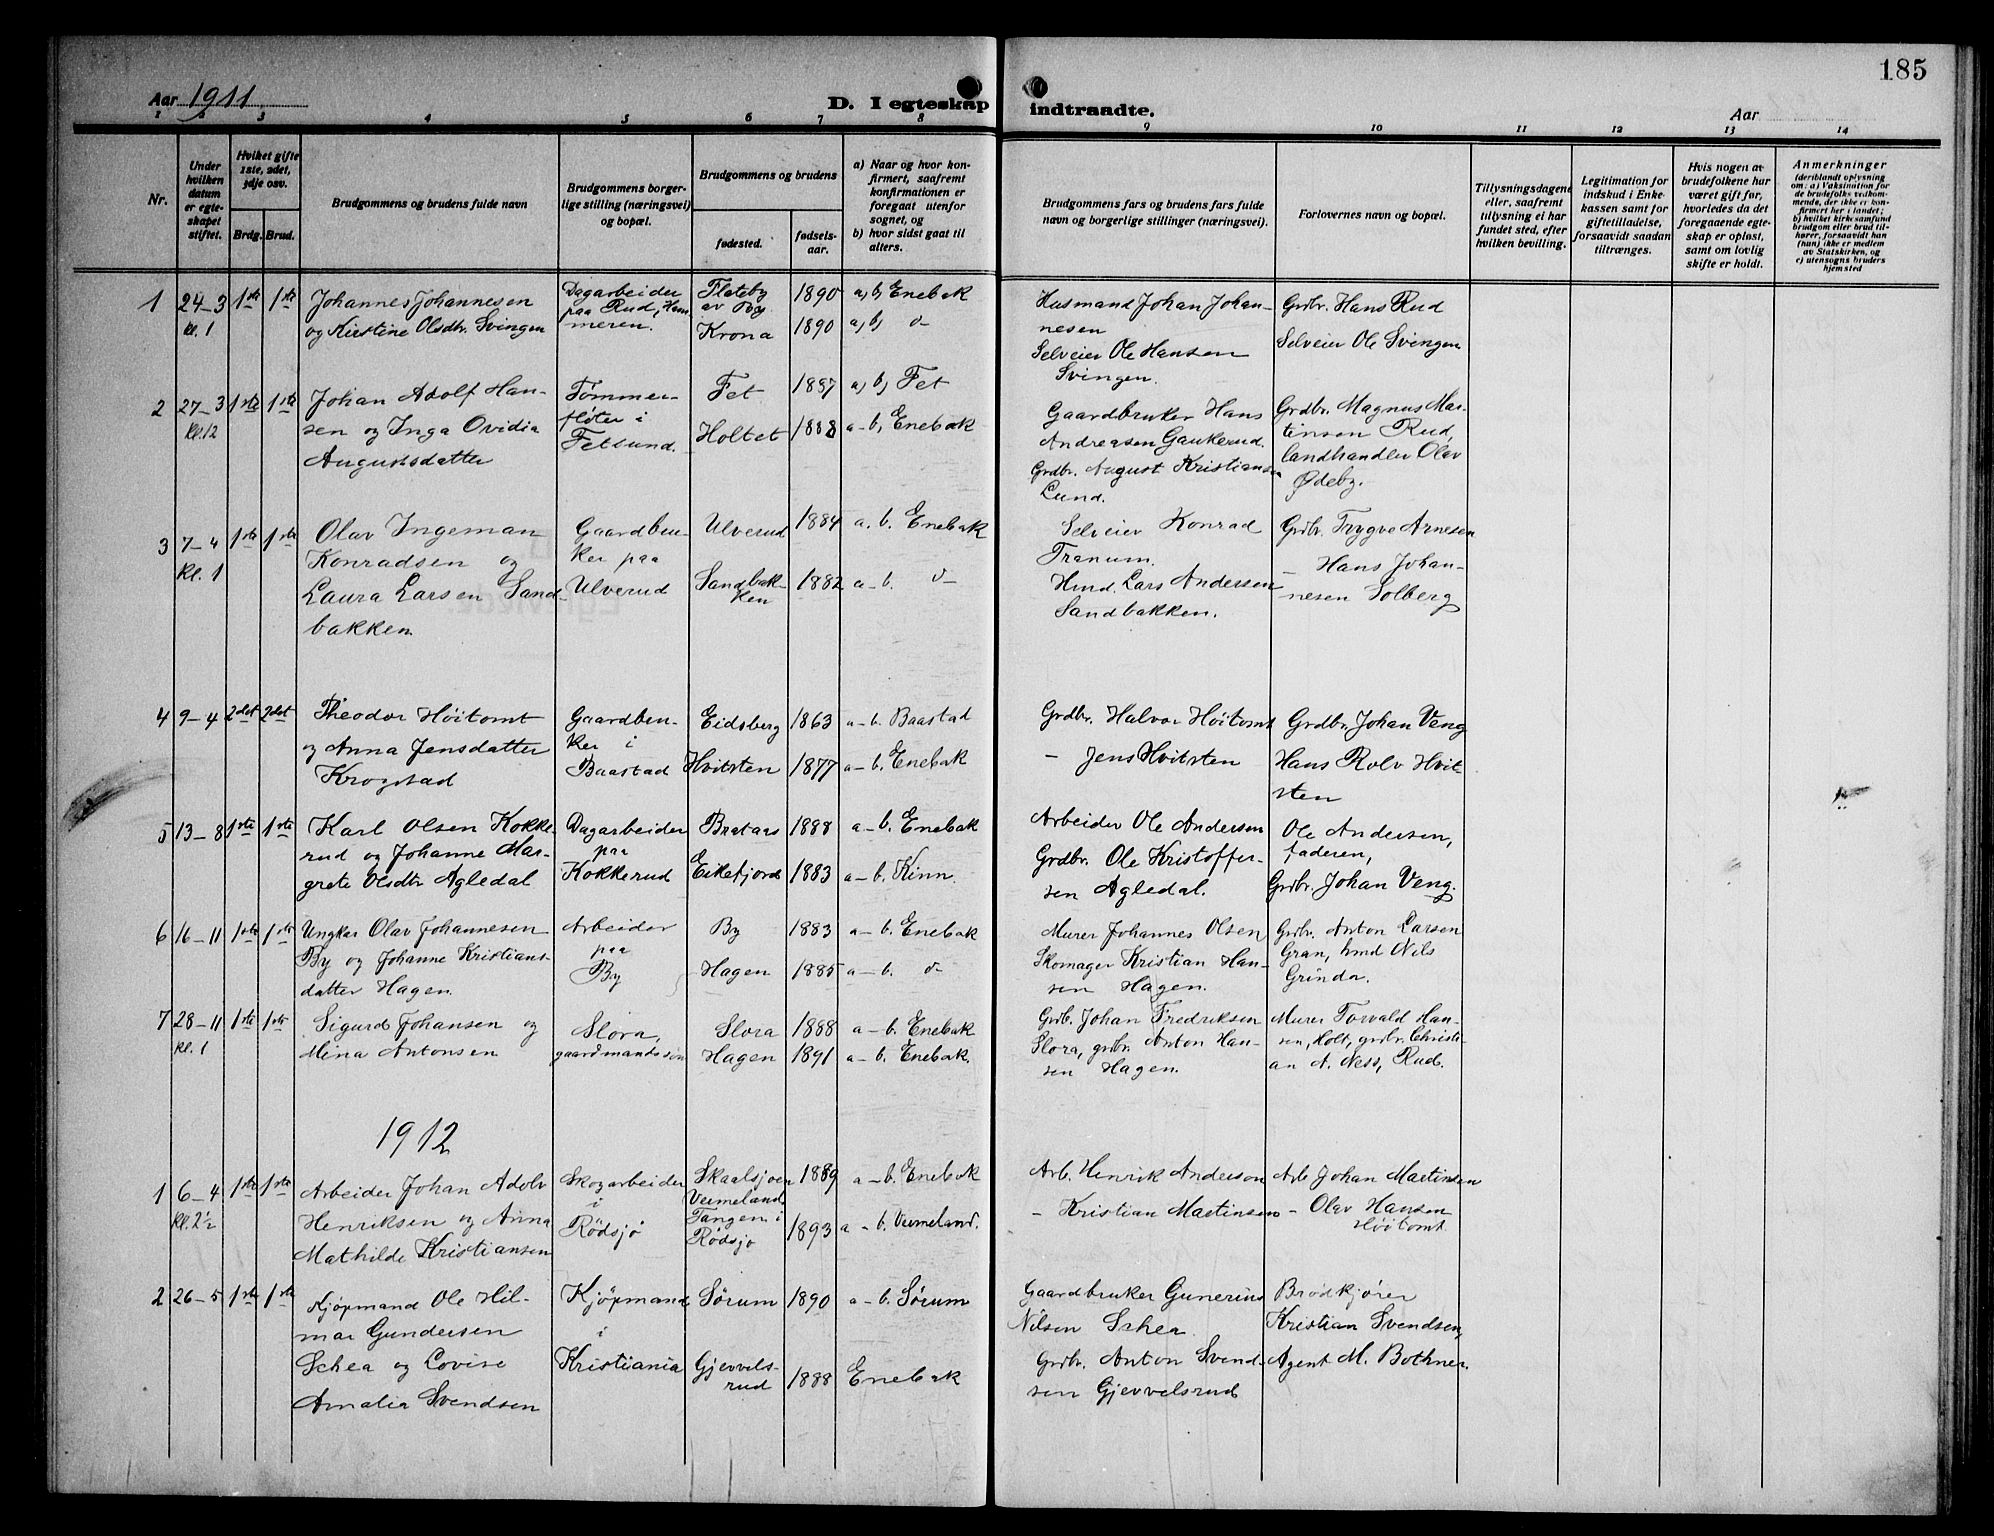 185
Aar 1911.
D. I egteskap indtraadte.
Aar
1 2 3 4 5 6 7 8 9 10 11 12 13 14
Nr.
Under hvilken datum er egteskapet stiftet.
Hvilket gifte 1ste, 2det, 3dje osv.
Brdg. Brud.
Brudgommens og brudens fulde navn
Brudgommens borgerlige stilling (næringsvei) og bopæl.
Brudgommens og brudens
fødested.
fødselsaar.
a) Naar og hvor konfirmert, saafremt konfirmationen er foregaat utenfor sognet, og
b) hvor sidst gaat til alters.
Brudgommens fars og brudens fars fulde navn og borgerlige stillinger (næringsvei).
Forlovernes navn og bopæl.
Tillysningsdagene eller, saafremt tillysning ei har fundet sted, efter hvilken bevilling.
Legitimation for indskud i Enkekassen samt for giftetilladelse, forsaavidt saadan tiltrænges.
Hvis nogen av brudefolkene har været gift før, hvorledes da det foregaaende egteskap er opløst, samt om lovlig skifte er holdt.
Anmerkninger
(deriblandt oplysning om: a) Vaksination for de brudefolks vedkommende, der ikke er konfirmert her i landet;
b) hvilket kirkesamfund brudgom eller brud tilhører, forsaavidt han (hun) ikke er medlem av Statskirken, og
c) utensogns bruders hjemsted
1 24-3 kl. 1 1ste 1ste
Johannes Johannesen
og Kirstine Olsdtr. Svingen
Dagarbeider
paa Rud, Ham-
meren.
Flateby
av By
Krona
1890
1890
a, b, Enebak
a, b, d-
Husmand Johan Johan-
nesen
Selveier Ole Hansen
Svingen.
Grdbr. Hans Rud
Selveier Ole Svingen
2 27-3 kl. 12 1ste 1ste
Johan Adolf Han-
sen og Inga Ovidia
Augustsdatter
Tømmer-
fløter i
Fetsund.
Fet
Holtet
1887
1888
a, b, Fet
a-b, Enebak
Gaardbruker Hans
Andreasen Gaukerud.
Grdbr. August Kristiansen
Lund.
Grdbr. Magnus Mar-
tinsen Rud,
landhandler Olav
Ødeby.
3 7-4 kl. 1 1ste 1ste
Olav Ingeman
Konradsen og
Laura Larsen Sand-
bakken.
Gaardbru-
ker paa
Ulverud
Ulverud
Sandbak-
ken
1884
1882
a. b. Enebak
a-b. d-
Selveier Konrad
Tranum.
Hmd. Lars Andersen
Sandbakken.
Grdbr. Trygve Arnesen
- Hans Johan-
nesen Solberg
4 9-4 2det 2det
Theodor Höitomt
og Anna Jensdatter
Krogstad
Gaardbru-
ker i
Baastad
Eidsberg
Hvitsten
1863
1877
a-b. Baastad
a-b. Enebak
Grdbr. Halvor Höitomt
- Jens Hvitsten
Grdbr. Johan Veng
Hans Rolv Hvit-
sten
5 13-8 1ste 1ste
Karl Olsen Kokke-
rud og Johanne Mar-
grete Olsdtr Agledal
Dagarbeider
paa
Kokkerud
Brataas
Eikefjord
1888
1883
a-b. Enebak
a-b. Kinn.
Arbeider Ole Andersen
Grdbr. Ole Kristoffer-
sen Agledal.
Ole Andersen,
faderen,
Grdbr. Johan Veng.
6 16-11 1ste 1ste
Ungkar Olav Johannesen
By og Johanne Kristians-
datter Hagen.
Arbeider
paa
By
By
Hagen
1883
1885
a-b. Enebak
a-b. d-
Murer Johannes Olsen
Skomager Kristian Han-
sen Hagen.
Grdbr. Anton Larsen
Gran, hmd Nils
Grinder.
7 28-11 kl. 1 1ste 1ste
Sigurd Johansen og
Mina Antonsen
Slora,
gaardmandssön
Slora
Hagen
1888
1891
a-b. Enebak
a-b. Enebak.
Grdb. Johan Fredriksen
Slora, grdbr. Anton Han-
sen Hagen.
Murer Torvald Han-
sen, Holt, grdbr. Christi-
an A. Ness, Rud.
1912
1 6-4 kl. 2½ 1ste 1ste
Arbeider Johan Adolv
Henriksen og Anna
Mathilde Kristiansen
Skogarbeider
i
Rödsjö
Skaalsjoen
Vermeland
Tangen i
Rödsjö
1889
1893
a-b. Enebak
a-b. Vermeland.
Arb. Henrik Anderson
- Kristian Martinsen
Arb Johan Martinsen
- Olav Hansen
Höitomt
2 26-5 1ste 1ste
Kjöpmand Ole Hil-
mar Gundersen
Schea og Lovise
Amalia Svendsen
Kjöpmand
i
Kristiania
Sörum
Gjevvels-
rud
1890
1888
a-b. Sörum
Enebak
Gaardbruker Gunerius
Nilsen Schea.
Grdbr. Anton Svend-
sen Gjevvelsrud
Brödkjörer
Kristian Svendsen,
Agent M. Bothner.